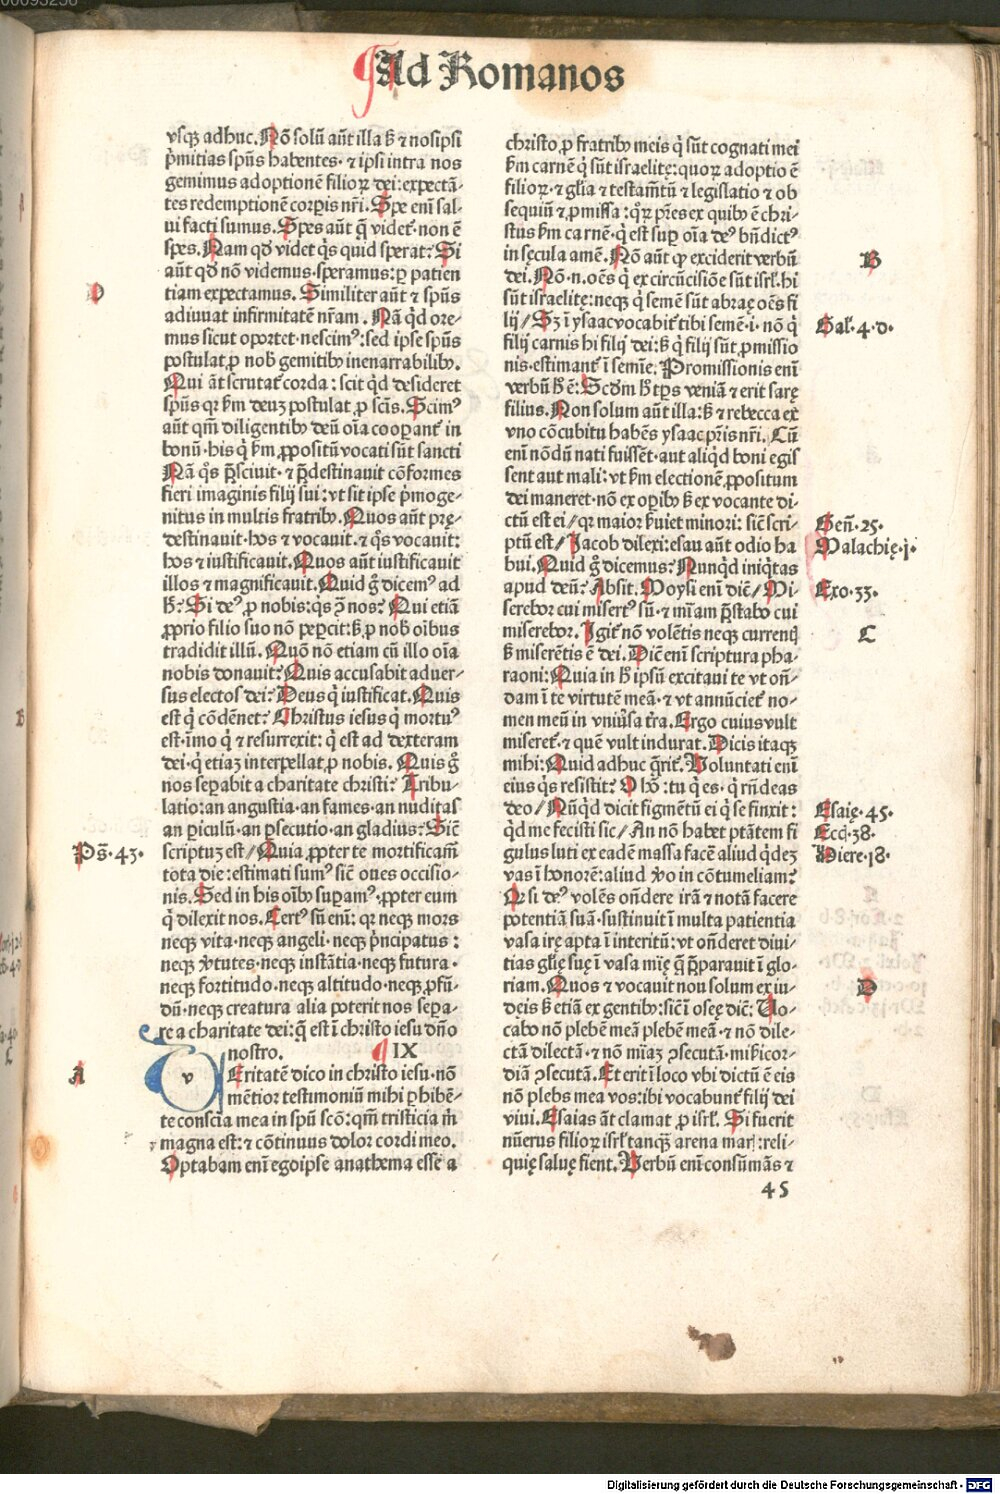 Ad Romanos
vsqꝫ adhuc. Nō solū aūt illa sꝫ ⁊ nosipsi
p̄mitias spūs habentes ⁊ ipsi intra nos
gemimus adoptionē filioꝝ dei: expectā-
tes redemptionē corꝑis nr̄i. Spe eni sal-
ui facti sumus. Spes aūt q̄ videt᷑ non ē
spes. Nam qd̄ videt q̇s quid sperat? Si
aūt qd̄ nō videmus speramus: ꝑ patien
tiam expectamus. Similiter aūt ⁊ spūs
adiuuat infirmitatē nr̄am. Nā q̇d ore-
mus sicut oportet nescimꝰ: sed ipse spūs
postulat ꝓ nob̄ gemitibꝰ inenarrabilibꝰ.
Qui āt scrutat᷑ corda: scit q̇d desideret
spūs qꝛ ẜm deuꝫ postulat ꝓ scīs. Scimꝰ
aūt qm̄ diligentibꝰ deū oīa cooꝑant᷑ in
bonū. his q̇ ẜm ꝓpositū vocati sūt sancti
Nā q̇s p̄sciuit ⁊ p̄destinauit cōformes
fieri imaginis filij sui: vt sit ipse p̄moge-
nitus in multis fratribꝰ. Quos aūt prę-
destinauit hos ⁊ vocauit. ⁊ q̇s vocauit:
hos ⁊ iustificauit. Quos aūt iustificauit
illos ⁊ magnificauit. Quid g̊ dicemꝰ ad
hꝫ? Si deꝰ ꝓ nobis: q̇s ꝯ nos? Qui etiā
ꝓprio filio suo nō peꝑcit: sꝫ ꝓ nob̄ oībus
tradidit illū. Quō nō etiam cū illo oīa
nobis donauit? Quis accusabit aduer-
sus electos dei? Deus q̇ iustificat. Quis
est q̇ cōdēnet? Christus iesus q̇ mortuꝰ
est. īmo q̇ ⁊ resurrexit: q̇ est ad dexteram
dei q̇ etiaꝫ interpellat ꝓ nobis. Quis g̊
nos seꝑabit a charitate christi? Tribu-
latio: an angustia an fames an nuditas
an ꝑiculū an ꝑsecutio an gladius? Sic̄
scriptuꝫ est / Quia ꝓpter te mortificam̄
tota die: estimati sumꝰ sic̄ oues occisio-
nis. Sed in his oībꝰ suꝑamꝰ ꝓpter eum
q̇ dilexit nos. Certꝰ sū enī: qꝛ neqꝫ mors
neqꝫ vita neqꝫ angeli neqꝫ p̄ncipatus:
neqꝫ v̄tutes neqꝫ instātia neqꝫ futura
neqꝫ fortitudo neqꝫ altitudo neqꝫ ꝓfū-
dū neqꝫ creatura alia poterit nos seꝑa-
re a charitate dei: q̄ est ī christo iesu dn̄o
nostro. IX
v Eritatē dico in christo iesu nō
mētior testimoniū mihi ꝑhibē-
te conscia mea in spū scō: qm̄ tristicia m̄
magna est: ⁊ cōtinuus dolor cordi meo.
Optabam enī egoipse anathema esse a
D
Ps̄. 43.
A
christo ꝓ fratribꝰ meis q̇ sūt cognati mei
ẜm carnē q̇ sūt israelitę: quoꝝ adoptio ē
filioꝝ ⁊ glīa ⁊ testam̄tū ⁊ legislatio ⁊ ob
sequiū ⁊ ꝓmissa: q̊ꝝ pr̄es ex quibꝰ ē chri-
stus ẜm carnē q̇ est suꝑ oīa deꝰ bn̄dictꝰ
in sęcula amē. Nō aūt ꝙ exciderit verbū
dei. Nō .n. oēs q̇ ex circūcisiōe sūt isrl̄. hi
sūt israelitę: neqꝫ q̇ semē sūt abraę oēs fi
lij / Sꝫ ī ysaac vocabit᷑ tibi semē .i. nō q̇
filij carnis hi filij dei: sꝫ q̇ filij sūt ꝓmissio
nis estimant᷑ ī semīe. Promissionis enī
verbū h̄ ē: Scd̄m h̄ tꝑs veniā ⁊ erit sarę
filius. Non solum aūt illa: sꝫ ⁊ rebecca ex
vno cōcubitu habēs ysaac pr̄is nr̄i. Cū
enī nōdū nati fuissēt aut aliq̇d boni egis
sent aut mali: vt ẜm electionē ꝓpositum
dei maneret nō ex oꝑibꝰ sꝫ ex vocante di-
ctū est ei / qꝛ maior ẜuiet minori: sic̄ scri-
ptū est / Jacob dilexi: esau aūt odio ha
bui. Quid g̊ dicemus? Nunq̇d iniq̇tas
apud deū? Absit. Moysi enī dic̄ / Mi
serebor cui misertꝰ sū ⁊ mīam p̄stabo cui
miserebor. Igit᷑ nō volētis neqꝫ currentꝭ
sꝫ miserētis ē dei. Dic̄ enī scriptura pha-
raoni: Quia in h̄ ipsū excitaui te vt on̄-
dam ī te virtutē meā ⁊ vt annūciet᷑ no-
men meū in vniūsa t̄ra. Ergo cuius vult
miseret᷑ ⁊ quē vult indurat. Dicis itaqꝫ
mihi: Quid adhuc q̄rit᷑. Voluntati enī
eius q̇s resistit? O hō: tu q̇ es q̇ rn̄deas
deo / Nūq̇d dicit figmētū ei q̇ se finxit:
q̇d me fecisti sic / An nō habet ptātem fi
gulus luti ex eadē massa facē aliud q̇dez
vas ī honorē: aliud v̊o in cōtumeliam?
Qr̄ si deꝰ volēs on̄dere irā ⁊ notā facere
potentiā suā sustinuit ī multa patientia
vasa irę apta ī interitū: vt on̄deret diui-
tias glīę suę ī vasa mīę q̄ p̄parauit ī glo-
riam. Quos ⁊ vocauit nou solum ex iu-
dęis sꝫ etiā ex gentibꝰ: sic̄ ī oseę dic̄: Uo-
cabo nō plebē meā plebē meā ⁊ nō dile-
ctā dilectā ⁊ nō mīaꝫ ꝯsecutā mīsericor-
diā ꝯsecutā. Et erit ī loco vbi dictū ē eis
nō plebs mea vos: ibi vocabunt᷑ filij dei
viui. Esaias āt clamat ꝓ isrl̄. Si fuerit
nūerus filioꝝ isrl̄ tanqꝫ arena marꝭ: reli-
quię saluę fient. Verbū enī consūmās ⁊
45
B
Gal. 4. d.
Gen̄. 25.
Malachię. j.
Exo. 33.
C
Esaię. 45.
Eccͥ. 38.
Hiere. 18.
D
Digitalisierung gefördert durch die Deutsche Forschungsgemeinschaft - DFG